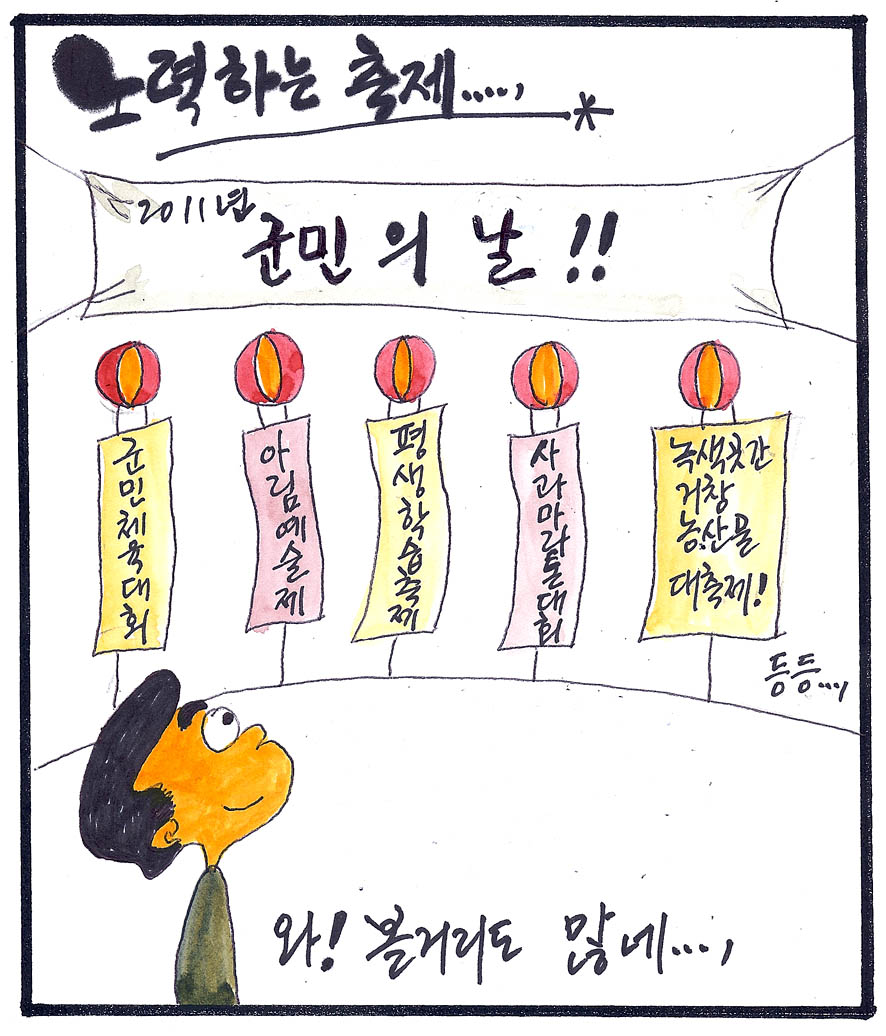 노력하는 축제.....,
2011년
군민의 날!!
군민체육대회
아림예술제
평생학습축제
사과마라톤대회
녹색곳간
거창
농산물
대축제!
등등...,
와! 볼거리도 많네...,